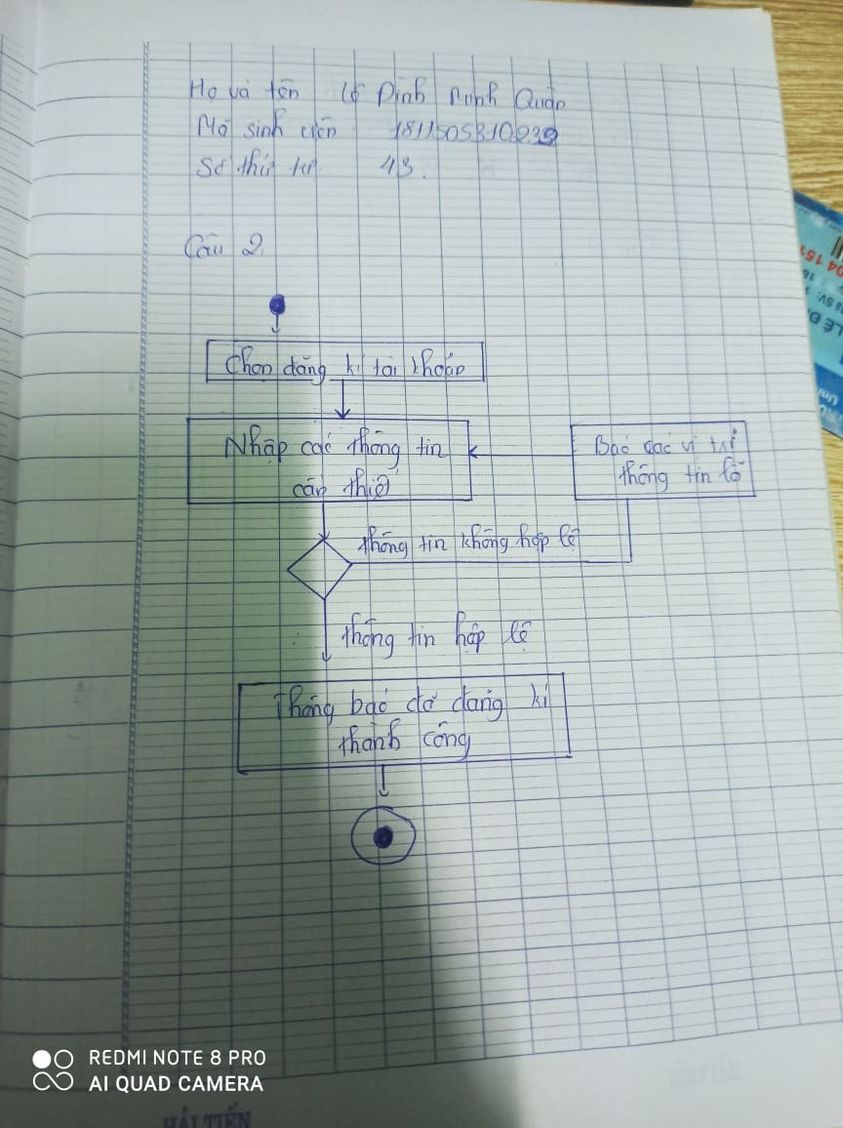 Họ và tên Lê Đình Minh Quân
Mã sinh viên
Số thứ tự 43.
Câu 2.
Chọn đăng kí tài khoản
Nhập các thông tin
cần thiết
Báo các vị trí
thông tin lỗi
thông tin không hợp lệ
thông tin hợp lệ
Thông báo đã đăng kí
thành công
REDMI NOTE 8 PRO
AI QUAD CAMERA
HẢI TIẾN